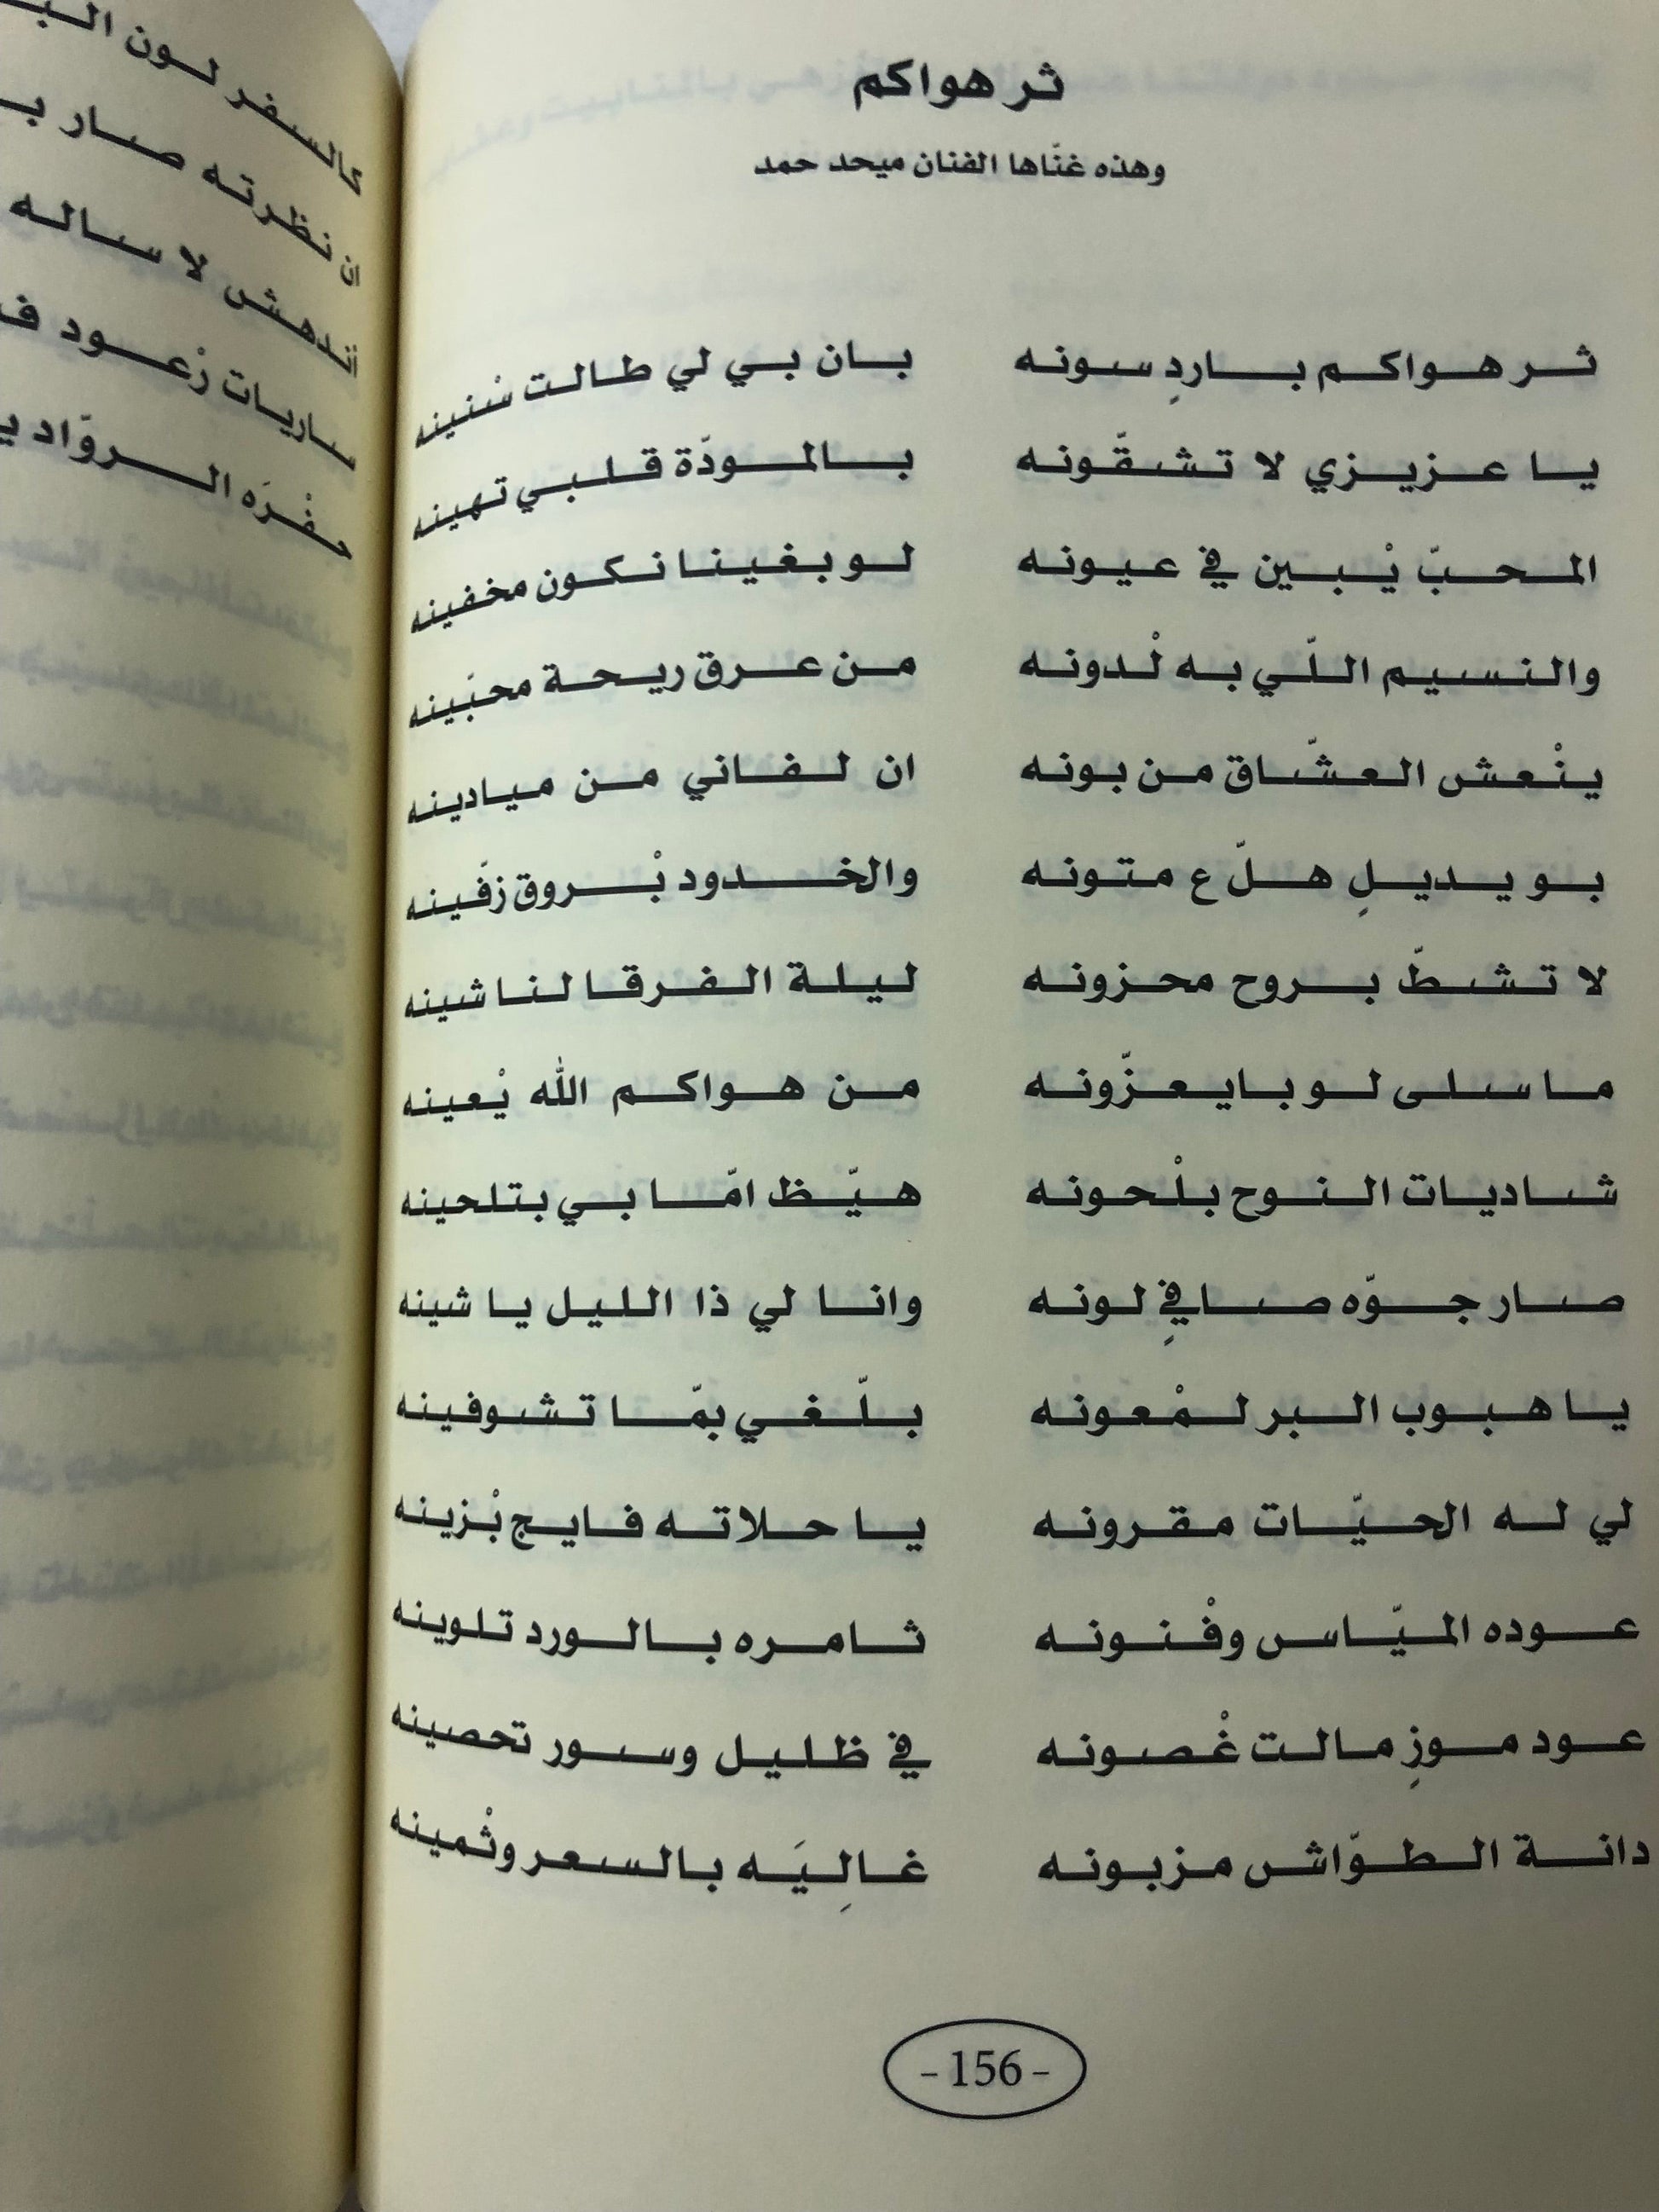 ثر هواكم
وهذه غنّاها الفنان ميحد حمد
ثر هواكم باردِ سونه بان بي لي طالت سْنينه
يا عزيزي لا تشقّونه بالمودّة قلبي تهينه
المحبّ يْبين في عيونه لو بغينا نكون مخفينه
والنسيم اللّي به لْدونه من عرق ريحة محبّينه
ينْعش العشّاق من بونه ان لفاني من ميادينه
بو يديلِ هلّ ع متونه والخدود بْروق زفّينه
لا تشطّ بروح محزونه ليلة الفرقا لنا شينه
ما سلى لو بايعزّونه من هواكم الله يْعينه
شاديات النوح بلْحونه هيّظ امّا بي بتلحينه
صار جوّه صافيِ لونه وانا لي ذا الليل يا شينه
يا هبوب البر لمْعونه بلّغي بمّا تشوفينه
لي له الحيّات مقرونه يا حلاته فايج بْزينه
عوده الميّاس وفْنونه ثامره بالورد تلوينه
عود موزِ مالت غْصونه في ظليل وسور تحصينه
دانة الطوّاش مزبونه غالِيَه بالسعر وثْمينه
- 156 -
كالسفر لون
ان نظرته صار
اندهش لا ساله
ساريات رْعود
حفْرَه الروّاد